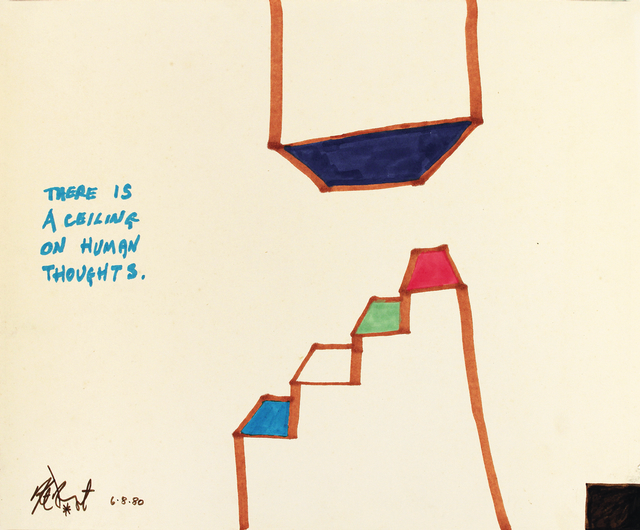 THERE IS
A CEILING
ON HUMAN
THOUGHTS.
6.8.80